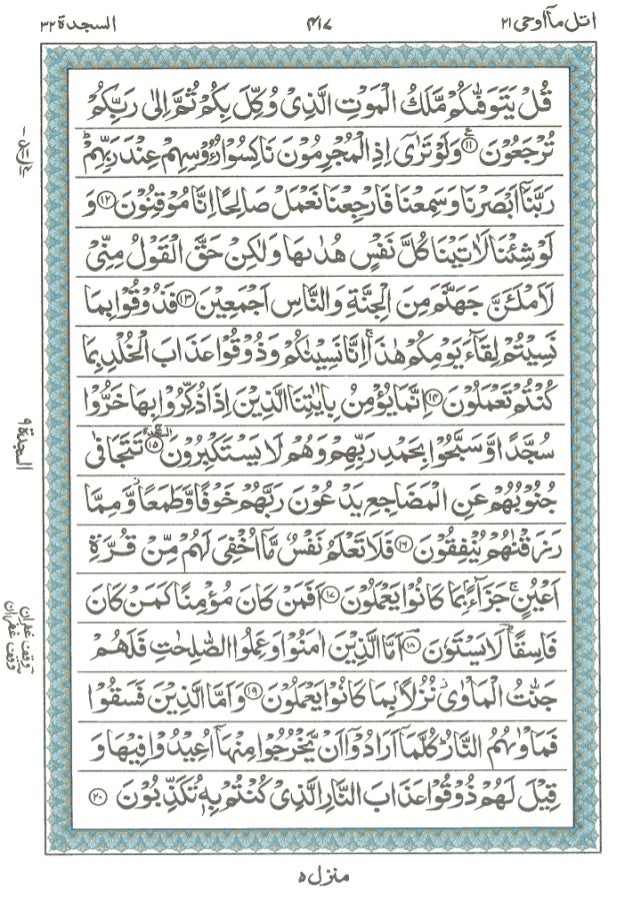 اتل مآ اوحی ٢١
٤١٧
السجدة ٣٢
قُلْ يَتَوَفّٰىكُمْ مَّلَكُ الْمَوْتِ الَّذِیْ وُكِّلَ بِكُمْ ثُمَّ اِلٰی رَبِّكُمْ
تُرْجَعُوْنَ ۧ﴿١١﴾ وَلَوْ تَرٰۤی اِذِ الْمُجْرِمُوْنَ نَاكِسُوْا رُءُوْسِهِمْ عِنْدَ رَبِّهِمْ ؕ
رَبَّنَاۤ اَبْصَرْنَا وَسَمِعْنَا فَارْجِعْنَا نَعْمَلْ صَالِحًا اِنَّا مُوْقِنُوْنَ ﴿١٢﴾ وَ
لَوْ شِئْنَا لَاٰتَيْنَا كُلَّ نَفْسٍ هُدٰىهَا وَلٰكِنْ حَقَّ الْقَوْلُ مِنِّیْ
لَاَمْلَـَٔنَّ جَهَنَّمَ مِنَ الْجِنَّةِ وَالنَّاسِ اَجْمَعِيْنَ ﴿١٣﴾ فَذُوْقُوْا بِمَا
نَسِيْتُمْ لِقَآءَ يَوْمِكُمْ هٰذَا ۚ اِنَّا نَسِيْنٰكُمْ وَذُوْقُوْا عَذَابَ الْخُلْدِ بِمَا
كُنْتُمْ تَعْمَلُوْنَ ﴿١٤﴾ اِنَّمَا يُؤْمِنُ بِاٰيٰتِنَا الَّذِيْنَ اِذَا ذُكِّرُوْا بِهَا خَرُّوْا
سُجَّدًا وَّسَبَّحُوْا بِحَمْدِ رَبِّهِمْ وَهُمْ لَا يَسْتَكْبِرُوْنَ ۩﴿١٥﴾ تَتَجَافٰی
جُنُوْبُهُمْ عَنِ الْمَضَاجِعِ يَدْعُوْنَ رَبَّهُمْ خَوْفًا وَّطَمَعًا ۫ وَّمِمَّا
رَزَقْنٰهُمْ يُنْفِقُوْنَ ﴿١٦﴾ فَلَا تَعْلَمُ نَفْسٌ مَّاۤ اُخْفِیَ لَهُمْ مِّنْ قُرَّةِ
اَعْيُنٍ ۚ جَزَآءًۢ بِمَا كَانُوْا يَعْمَلُوْنَ ﴿١٧﴾ اَفَمَنْ كَانَ مُؤْمِنًا كَمَنْ كَانَ
فَاسِقًا ؔؕ لَا يَسْتَوٗنَ ﴿١٨﴾ اَمَّا الَّذِيْنَ اٰمَنُوْا وَعَمِلُوا الصّٰلِحٰتِ فَلَهُمْ
جَنّٰتُ الْمَاْوٰی ؗ نُزُلًۢا بِمَا كَانُوْا يَعْمَلُوْنَ ﴿١٩﴾ وَاَمَّا الَّذِيْنَ فَسَقُوْا
فَمَاْوٰىهُمُ النَّارُ ؕ كُلَّمَاۤ اَرَادُوْۤا اَنْ يَّخْرُجُوْا مِنْهَاۤ اُعِيْدُوْا فِيْهَا وَ
قِيْلَ لَهُمْ ذُوْقُوْا عَذَابَ النَّارِ الَّذِیْ كُنْتُمْ بِهٖ تُكَذِّبُوْنَ ﴿٢٠﴾
السجدة ٩
وقف غفران
وقف غفران
منزل ٥